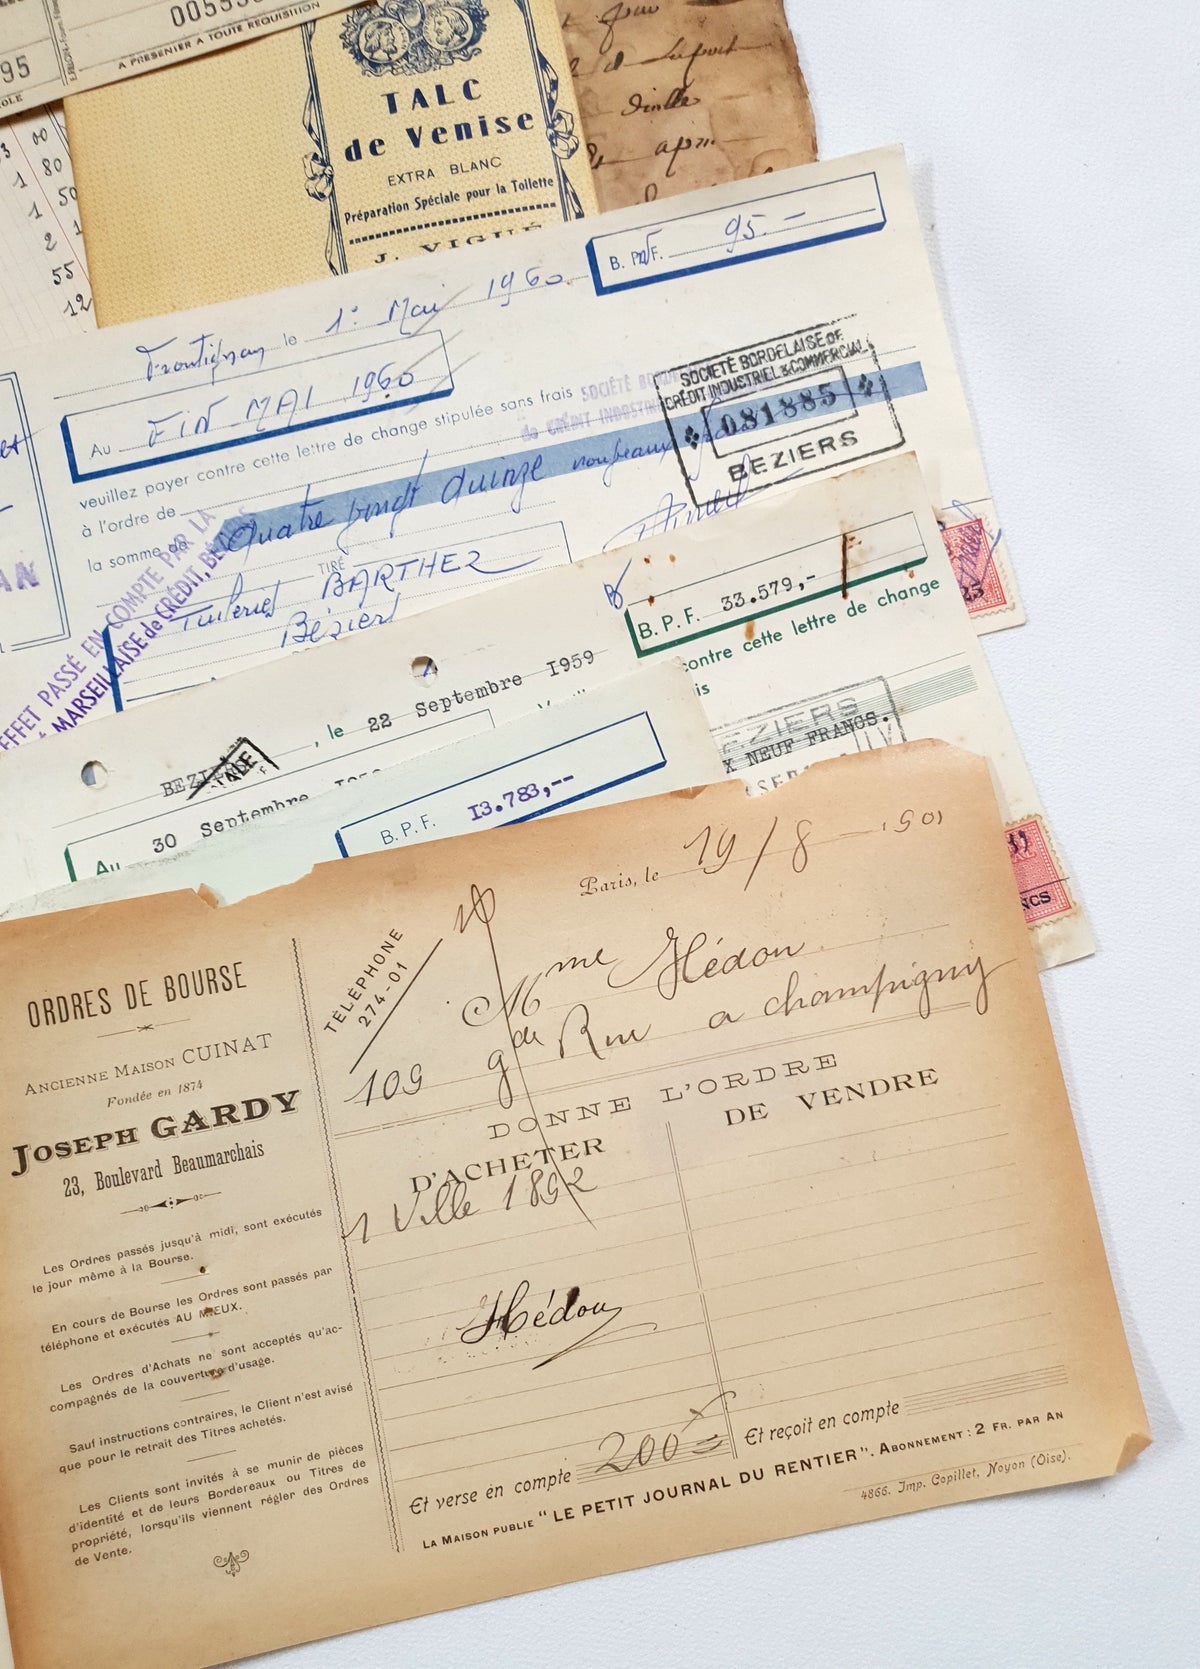 00595
A PRÉSENTER A TOUTE RÉQUISITION
95
00
1 80
1 50
2 1
55
12
TALC
de Venise
EXTRA BLANC
Préparation Spéciale pour la Toilette
J. VIGUÉ
Frontignan le 1er Mai 1960
B. P. F. 95.-
Au FIN MAI 1960
veuillez payer contre cette lettre de change stipulée sans frais
à l'ordre de
la somme de Quatre vingt Quinze nouveaux
SOCIÉTÉ BORDELAISE DE
CRÉDIT INDUSTRIEL & COMMERCIAL
081885
BEZIERS
TIRÉ
BARTHEZ
Béziers
EFFET PASSÉ EN COMPTE PAR LA
MARSEILLAISE de CRÉDIT, BÉZIERS
B.P.F. 33.579,-
contre cette lettre de change
BEZIERS, le 22 Septembre 1959
Au 30 Septembre 1959
BEZIERS
X NEUF FRANCS.
B.P.F. 13.783,--
NCS
Paris, le 19/8 1901
TÉLÉPHONE
274-01
Mme Hédou
109 gde Rue a champigny
DONNE L'ORDRE
D'ACHETER
DE VENDRE
1 Ville 1892
Hédou
Et verse en compte 200
Et reçoit en compte
LA MAISON PUBLIE "LE PETIT JOURNAL DU RENTIER". ABONNEMENT : 2 FR. PAR AN
4866. Imp. Copillet, Noyon (Oise).
ORDRES DE BOURSE
ANCIENNE MAISON CUINAT
Fondée en 1874
JOSEPH GARDY
23, Boulevard Beaumarchais
Les Ordres passés jusqu'à midi, sont exécutés
le jour même à la Bourse.
En cours de Bourse les Ordres sont passés par
téléphone et exécutés AU MIEUX.
Les Ordres d'Achats ne sont acceptés qu'ac-
compagnés de la couverture d'usage.
Sauf instructions contraires, le Client n'est avisé
que pour le retrait des Titres achetés.
Les Clients sont invités à se munir de pièces
d'identité et de leurs Bordereaux ou Titres de
propriété, lorsqu'ils viennent régler des Ordres
de Vente.